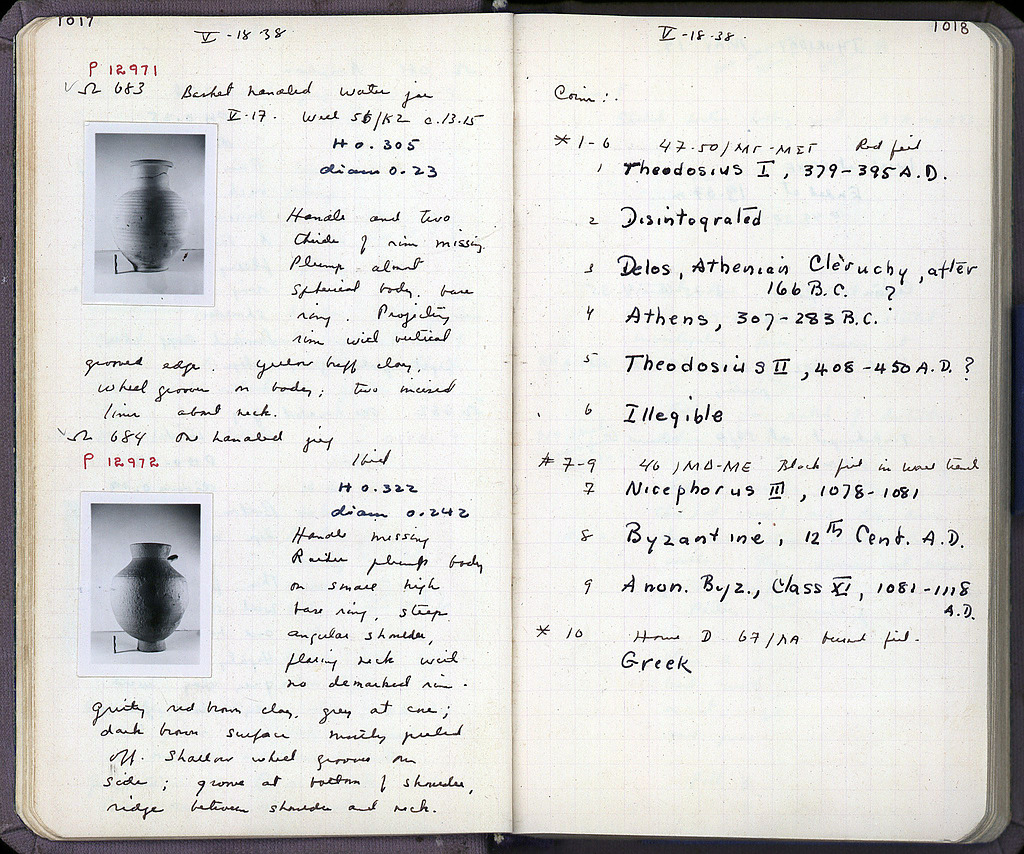 1017
V-18-38
P 12971
Ω 683 Basket handled water jar
V-17. Well 56/K2 c. 13.15
H 0.305
diam 0.23
Handle and two
thirds of rim missing.
Plump almost
spherical body, base
ring. Projecting
rim with vertical
grooved edge. Yellow buff clay.
Wheel grooves on body; two incised
lines about neck.
Ω 684 One handled jug
P 12972 Ibid
H 0.322
diam 0.242
Handle missing
Rather plump body
on small high
base ring, steep
angular shoulder,
flaring neck with
no demarked rim.
Gritty red brown clay, grey at core;
dark brown surface mostly peeled
off. Shallow wheel grooves on
side; groove at bottom of shoulder,
ridge between shoulder and neck.
1018
V-18-38.
Coins:
* 1-6 47-50/ΜΓ-ΜΣΤ Red fill
1 Theodosius I, 379-395 A.D.
2 Disintograted
3 Delos, Athenian Cleruchy, after
166 B.C. ?
4 Athens, 307-283 B.C.
5 Theodosius II, 408-450 A.D. ?
6 Illegible
* 7-9 46/ΜΔ-ΜΕ Black fill in wall trench
7 Nicephorus III, 1078-1081
8 Byzantine, 12th Cent. A.D.
9 Anon. Byz., Class XI, 1081-1118
A.D.
* 10 House D 67/ΛΑ burnt fill.
Greek